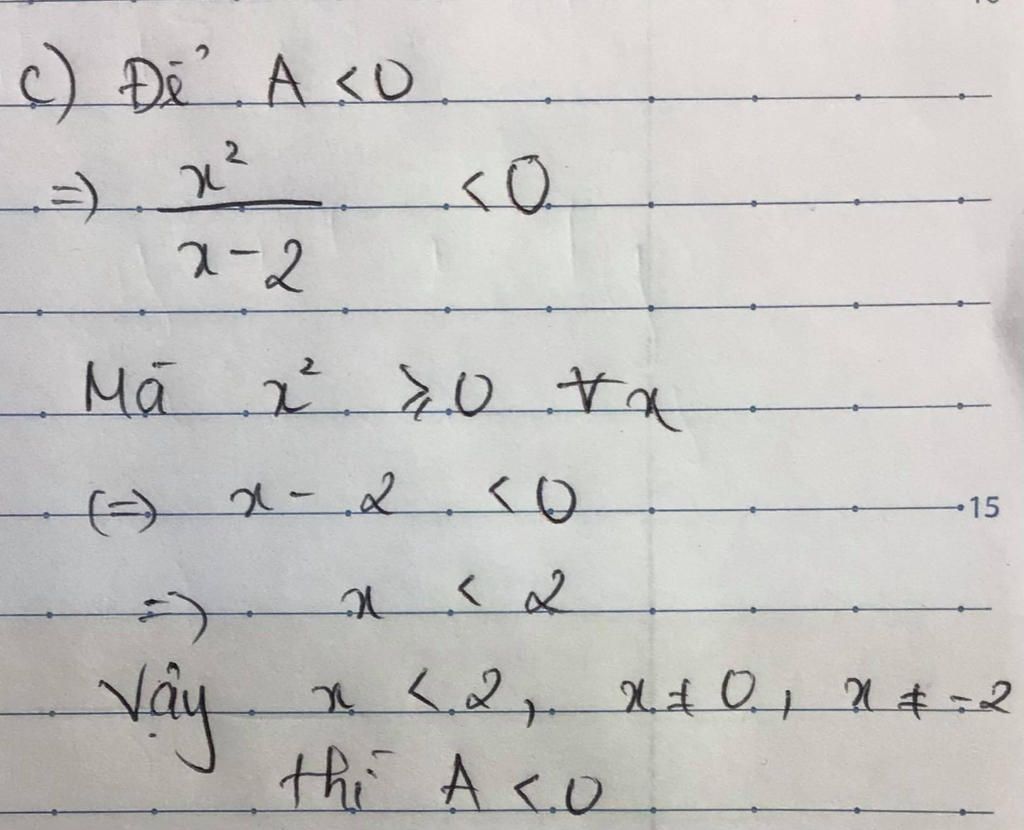 c) Để A < 0
=> x²/(x-2) < 0
Mà x² ≥ 0 ∀x
(=> x - 2 < 0
15
=> x < 2
Vậy x < 2, x ≠ 0, x ≠ -2
thì A < 0